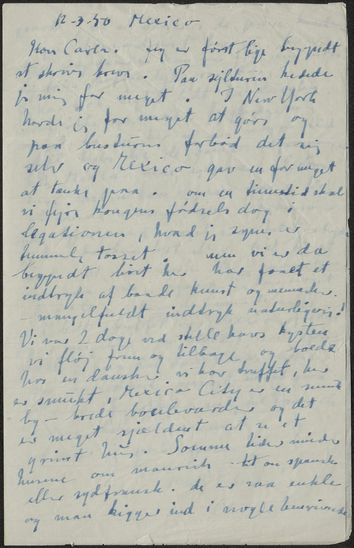 12-3-50 Mexico
Kære Carla. Jeg er først lige begyndt
at skrive breve. Paa sejlturen kedede
jeg mig for meget. I New York
havde jeg for meget at gøre og
paa busturen forbød det sig
selv og Mexico gav en for meget
at tænke paa. om en timestid skal
vi fejre kongens fødselsdag i
legationen, hvad jeg synes er
temmelig tosset. men vi er da
begyndt her har faaet et
indtryk af baade kunst og mennesker.
- mangelfuldt indtryk naturligvis!
Vi var 2 dage ved stillehavs kysten
vi fløj frem og tilbage og boede
hos en dansker vi har truffet, her
er smukt, Mexico City er en smuk
by - brede boulevarder og det
er meget sjældent at se et
grimt hus. Somme tider minder
husene om maurisk - lidt om spansk
eller sydfransk. de er saa enkle
og man kigger ind i nogle